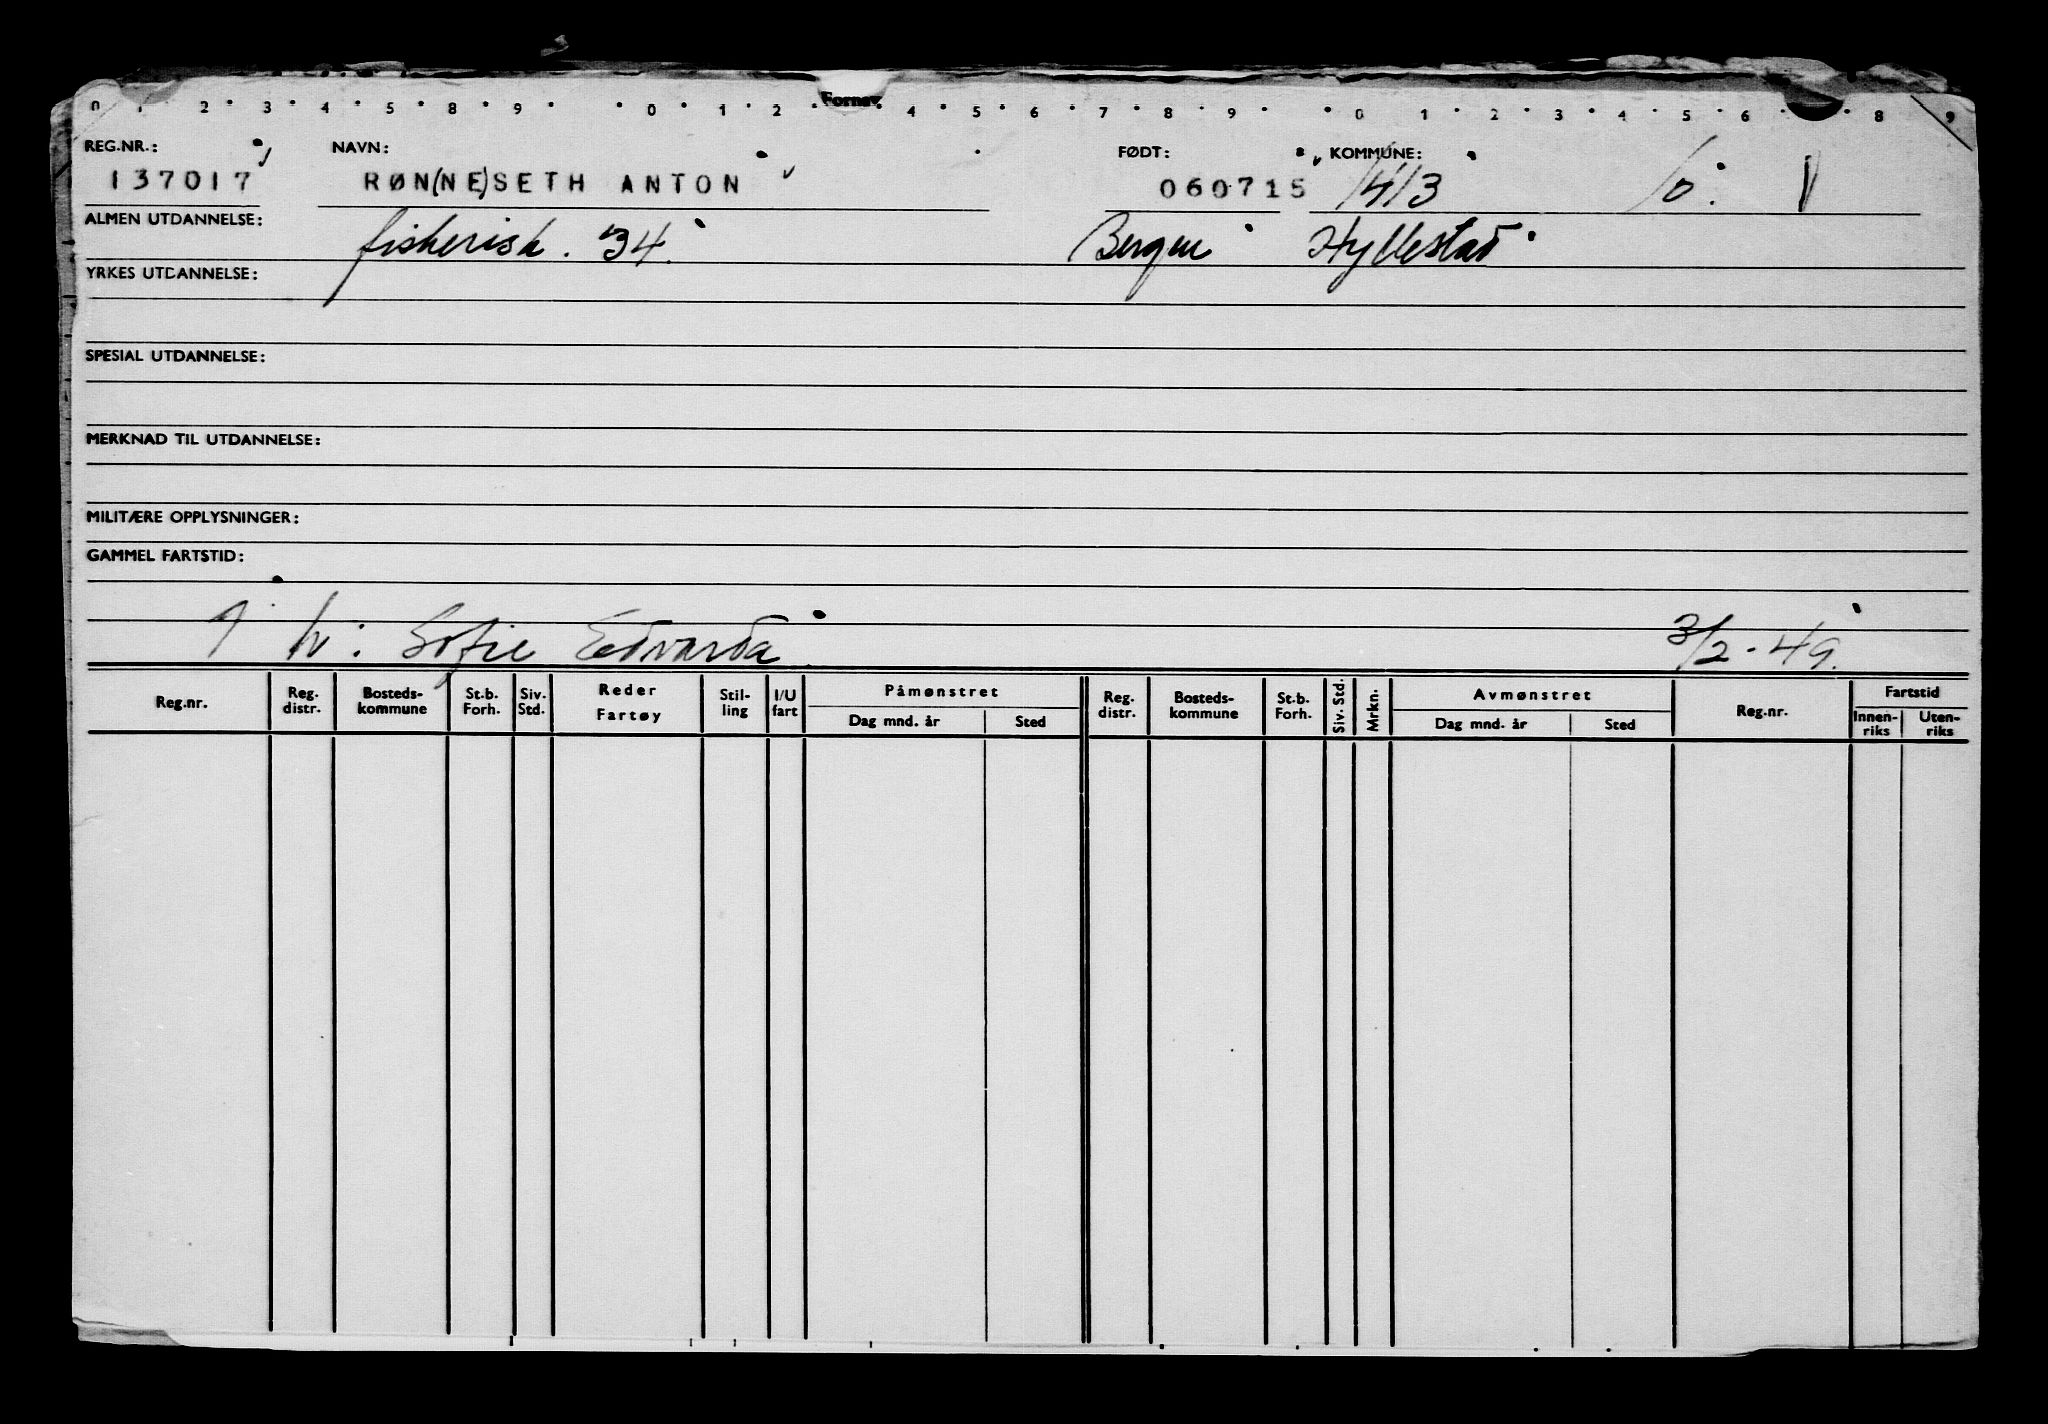 0 1 2 3 4 5 8 9 0 1 2 Fornav 4 5 6 7 8 9 0 1 2 3 4 5 6 8 9
REG.NR.: NAVN: FØDT: KOMMUNE:
137017 RØN(NE)SETH ANTON 060715 1413 ö. 1
ALMEN UTDANNELSE: fiskerisk. 34. Bergen Hyllestad
YRKES UTDANNELSE:
SPESIAL UTDANNELSE:
MERKNAD TIL UTDANNELSE:
MILITÆRE OPPLYSNINGER:
GAMMEL FARTSTID:
h: Sofie Edvarda 3/2-49.
Reg.nr. Reg. distr. Bosteds-kommune St.b. Forh. Siv. Std. Reder Fartøy Stil-ling I/U fart Påmønstret Reg. distr. Bosteds-kommune St.b. Forh. Siv. Std. Mrkn. Avmønstret Reg.nr. Fartstid
Dag mnd. år Sted Dag mnd. år Sted Innen-riks Uten-riks